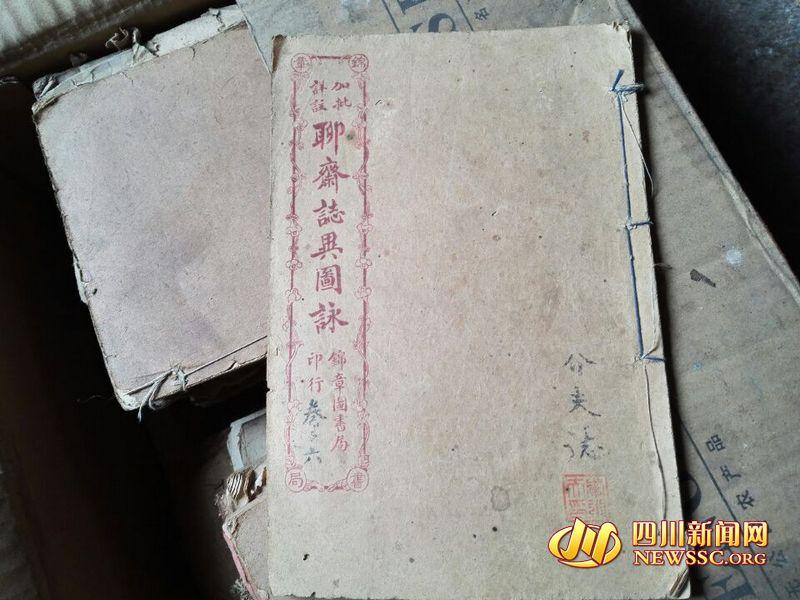 錦章
加批
詳註
聊齋誌異圖詠
錦章圖書局
印行
卷之六
書局
农产品
四川新闻网
NEWSSC.ORG